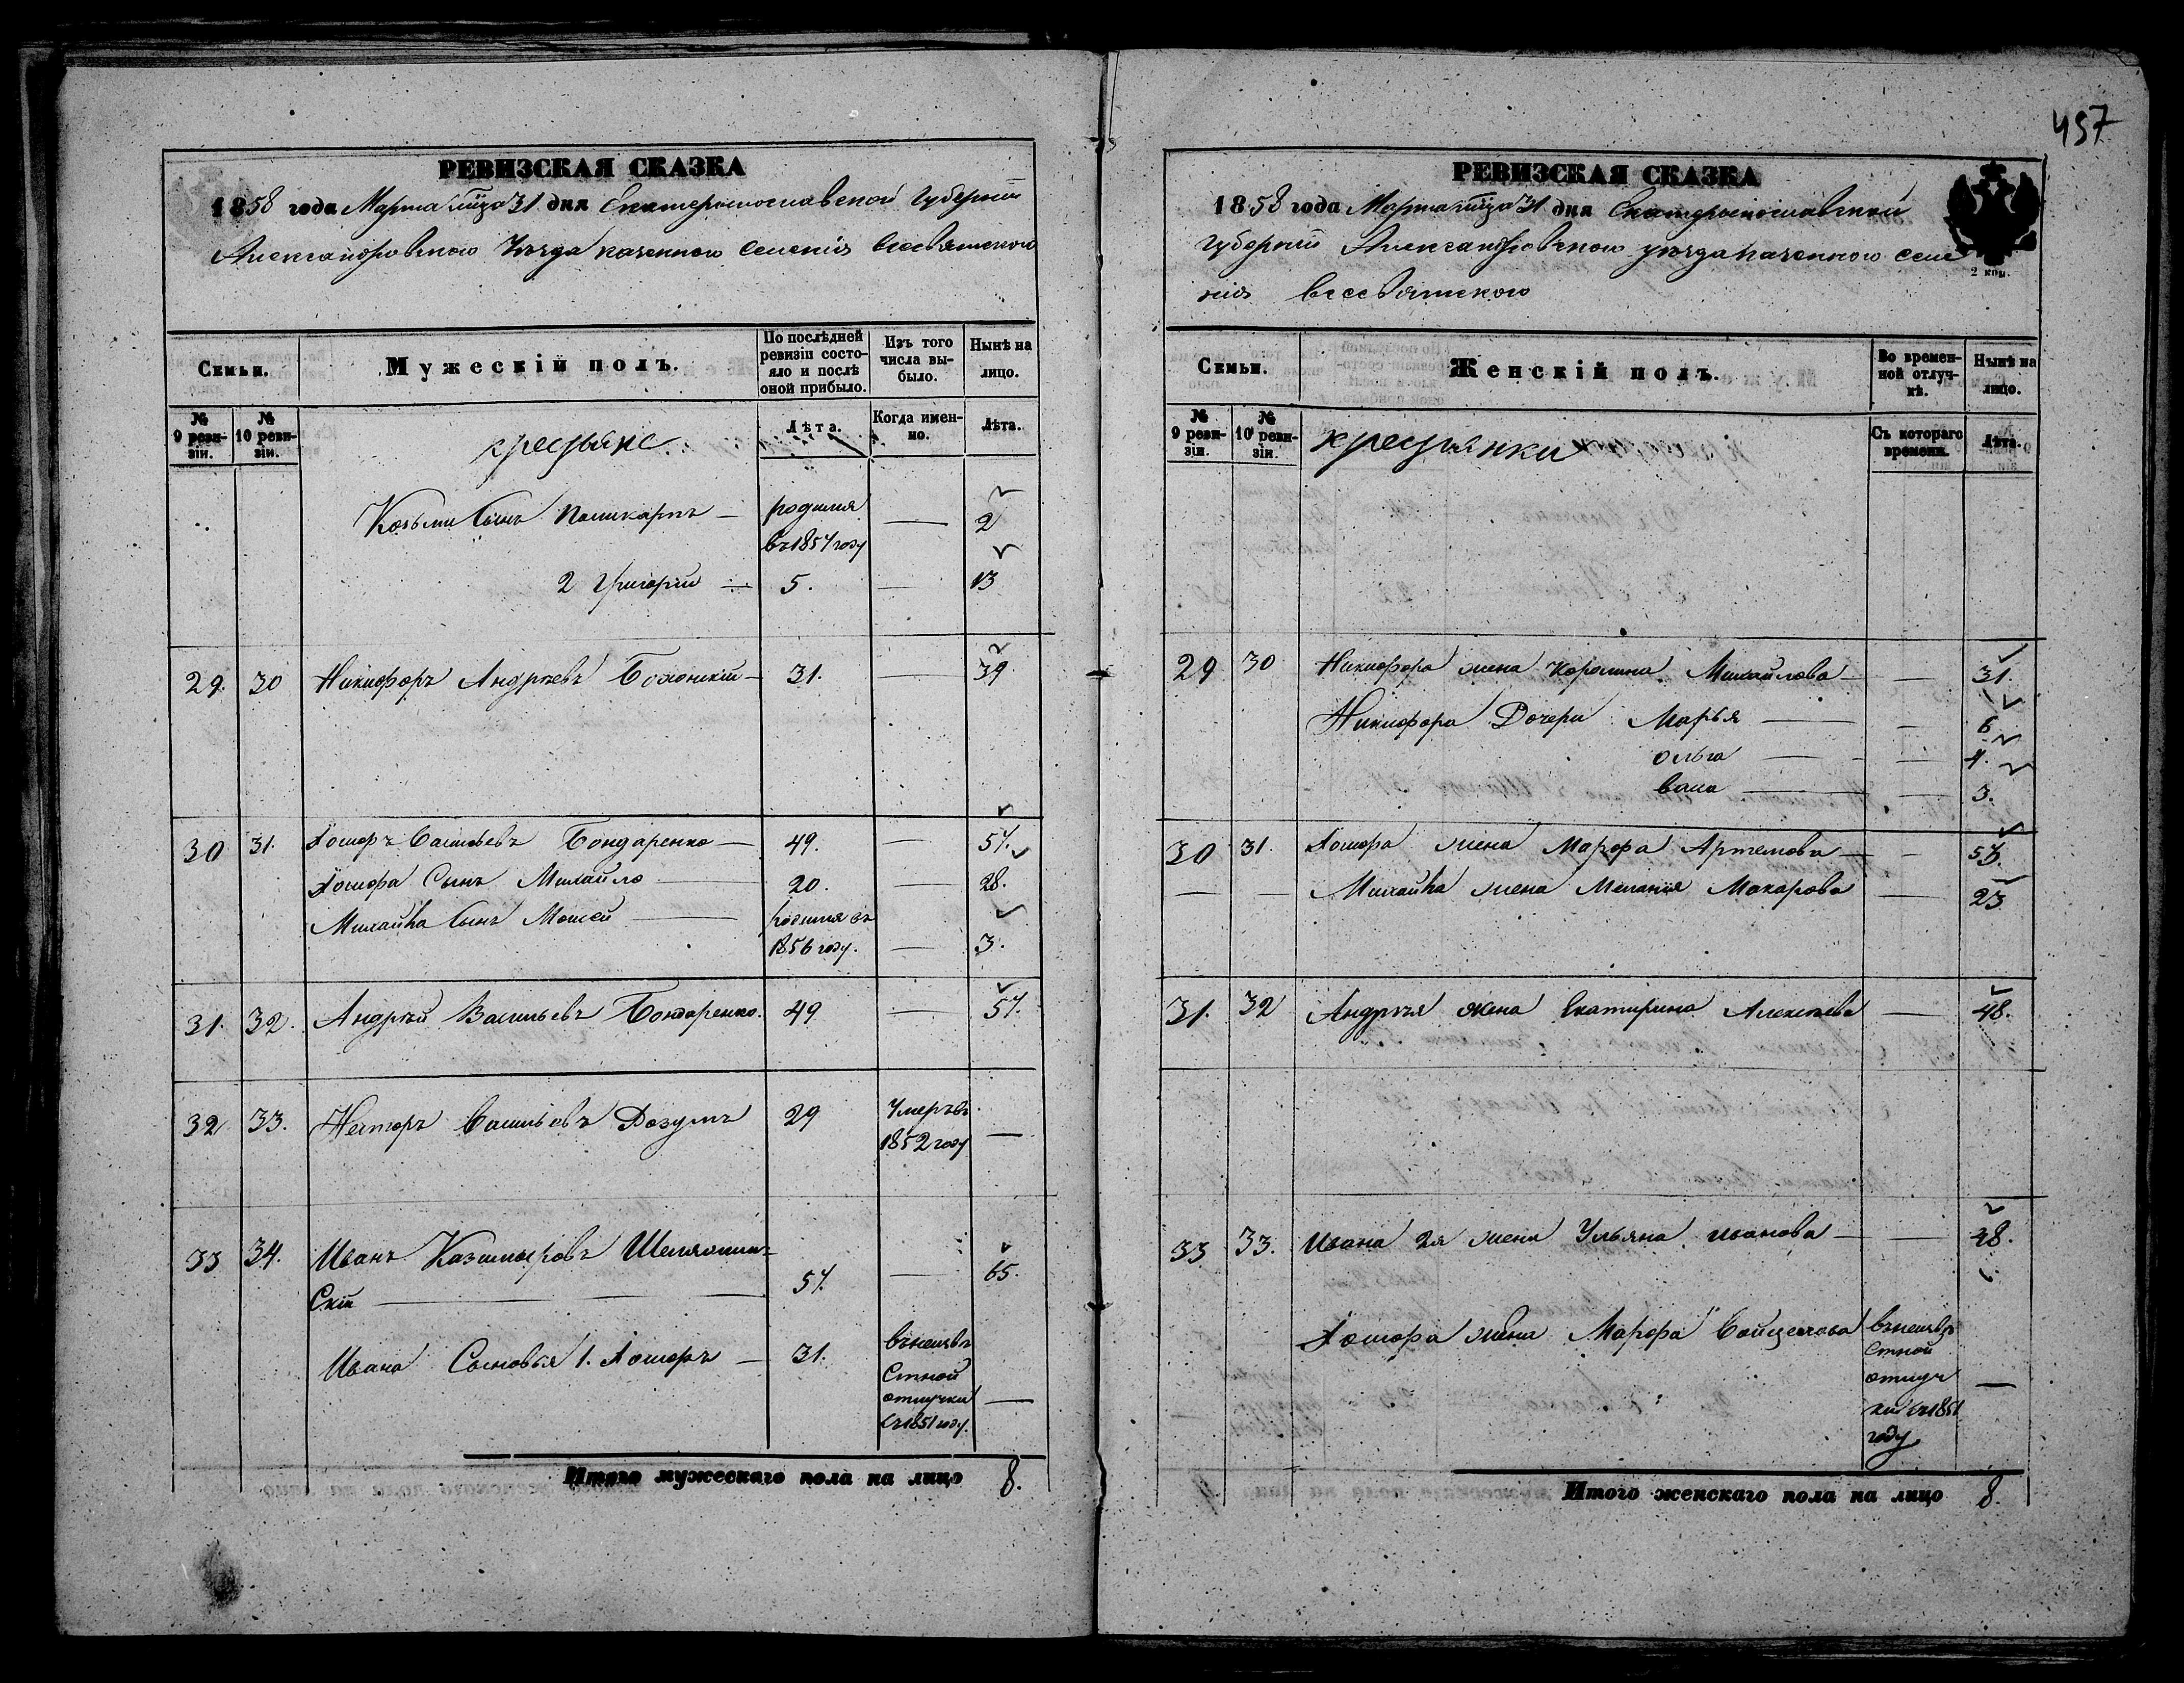 457
РЕВИЗСКАЯ СКАЗКА
1858 года Марта м̃ца 31 дня Екатеринославской Губернии
Александровского Уѣзда казенного селения Всесвятского
Семьи.
Мужескій полъ.
По послѣдней ревизіи состояло и послѣ оной прибыло.
Изъ того числа выбыло.
Нынѣ на лицо.
№ 9 ревизіи.
№ 10 ревизіи.
крестьяне
Лѣта.
Когда именно.
Лѣта.
Козьми Сынъ Поликарпъ — родился въ 1857 году — 2
2 Григорий — 5. — 13
29. 30 Никифоръ Андреевъ — 31. — 39
30 31. Васильевъ Бондаренко — 49. — 57.
Сынъ Михайло — 20. — 28.
Михайла Сынъ Мосей — родился въ 1856 году. — 3.
31. 32. Андрѣй Васильевъ Бондаренко. 49 — 57.
32 33. Несторъ Васильевъ Довгуль 29 Умеръ въ 1852 году —
33 34. Иванъ Казимировъ
Скій — 57. — 65.
Ивана Сыновья 1. — 31. въ неизвѣстной отлучки съ 1851 году. —
Итого мужескаго пола на лицо 8.
РЕВИЗСКАЯ СКАЗКА
1858 года Марта м̃ца 31 дня Екатеринославской
губернии Александровского уѣзда казенного селе
ния Всесвятского
2 коп.
Семьи.
Женскій полъ.
Во временной отлучкѣ.
Нынѣ на лицо.
№ 9 ревизіи.
№ 10 ревизіи.
крестьянки
Съ котораго времени.
Лѣта.
29 30 Никифора жена Каролина Михайлова — — 31.
Никифора Дочери Марья — — 6
Ольга — — 4.
— — 3.
30 31. жена Марфа Артемова — — 56.
— — Михайла жена Мелания Макарова — 23
31. 32 Андрѣя жена Екатирина Алексѣева — 48.
33 33. Ивана 2я жена Ульяна Иванова — — 48.
жена Марфа въ неизвѣстной отлучки съ 1851 году —
Итого женскаго пола на лицо 8.